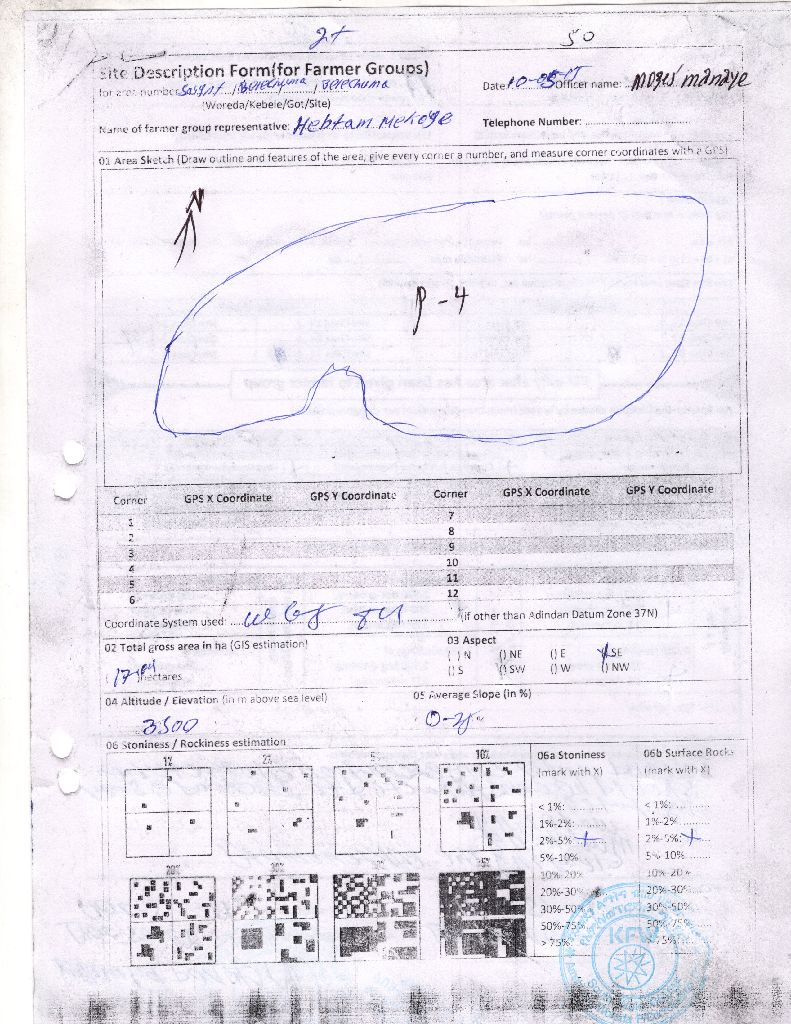 2+ 50
Site Description Form(for Farmer Groups)
for area number Sasgut / Berechuma / Berechuma Date 10-05 Officer name: Moges manaye
(Woreda/Kebele/Got/Site)
Name of farmer group representative: Hebtam Mekoge Telephone Number:
01 Area Sketch (Draw outline and features of the area, give every corner a number, and measure corner coordinates with a GPS)
N
P - 4
Corner GPS X Coordinate GPS Y Coordinate Corner GPS X Coordinate GPS Y Coordinate
1 7
2 8
3 9
4 10
5 11
6 12
Coordinate System used: (if other than Adindan Datum Zone 37N)
02 Total gross area in ha (GIS estimation) 03 Aspect
( ) N () NE () E SE
hectares () S () SW () W () NW
04 Altitude / Elevation (in m above sea level) 05 Average Slope (in %)
3500
06 Stoniness / Rockiness estimation
1% 2% 5% 10% 06a Stoniness 06b Surface Rocks
(mark with X) (mark with X)
< 1%: < 1%:
1%-2%: 1%-2%
2%-5% + 2%-5%: +
5%-10% 5%-10%
10%-20% 10%-20%
20%-30% 20%-30%
30%-50% 30%-50%
50%-75% 50%-75%
> 75%: > 75%:
KFW